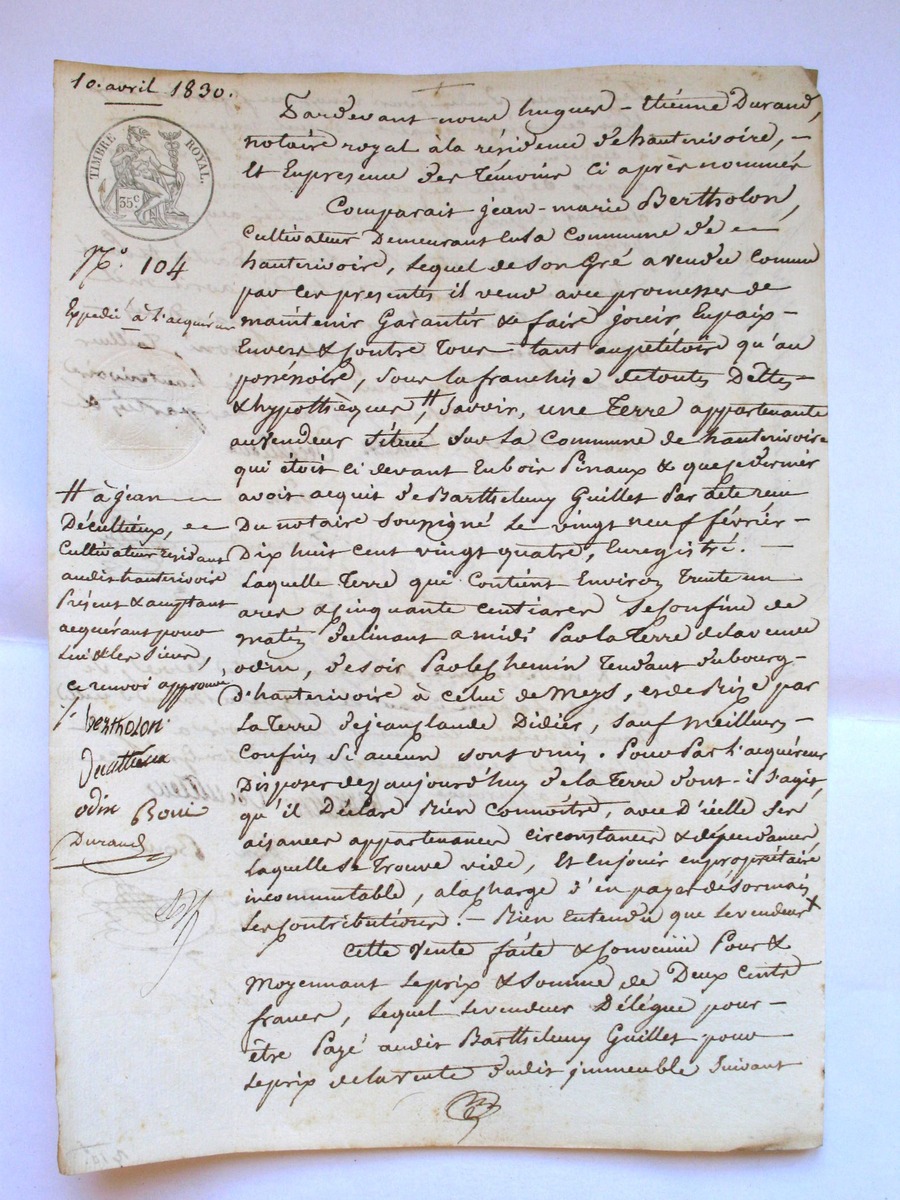 10. avril 1830.
TIMBRE ROYAL.
35c
N.o 104
Expedié à l'acquéreur
Pardevant nous hugues-étienne Durand,
notaire royal à la résidence d'hauterivoire,
Et En presence des Témoins Ci après nommés
Comparait jean-marie Bertholon,
Cultivateur Demeurant en la Commune de
hauterivoire, Lequel de son Gré a vendu Comme
par Ces presentes il vend avec promesses de
maintenir Garantir & faire jouir En paix
Envers & Contre Tous tant au pétitoire qu'au
possessoire, sous la franchise de toutes Dettes
& hypothèques, # Savoir, une Terre appartenante
au vendeur située sur la Commune de hauterivoire
qui étoit ci devant En bois Pinaux & que ce dernier
avoit acquit de Barthelemy Guillet Par acte reçu
Du notaire soussigné Le vingt neuf février
Dix huit cent vingt quatre, Enregistré.
Laquelle Terre qui Contient Environ trente un
ares & cinquante centiares se Confine de
matin declinant a midi Par la Terre de la veuve
odin, de soir Par le Chemin Tendant du bourg
d'hauterivoire à celui de Meys, et de Bize par
La Terre de jean Claude Didier, sauf meilleurs
Confins Si aucun sont omis. Pour Par l'acquéreur
Disposer dez aujourd'huy de la Terre dont il s'agit,
qu'il Déclare Bien Connoitre, avec D'icelle ses
aisances appartenances circonstances & dépendances
Laquelle Se Trouve vide, Et En jouir en propriétaire
incommutable, a la Charge d'en payer désormais
Les Contributions. - Bien Entendu que Le vendeur x
Cette Vente faite & Convenue Pour &
Moyennant Le prix & Somme de Deux Cents
francs, Lequel Le vendeur Délégue pour
être Payé audit Barthelemy Guillet pour
Le prix de la vente dudit immeuble Suivant
# à jean
Décultieux,
Cultivateur résidant
audit hauterivoire
Présent & acceptant
acquérant pour
Lui & Les Siens,
ce renvoi approuvé
bertholon
Decultieux
odin Boni
Durand